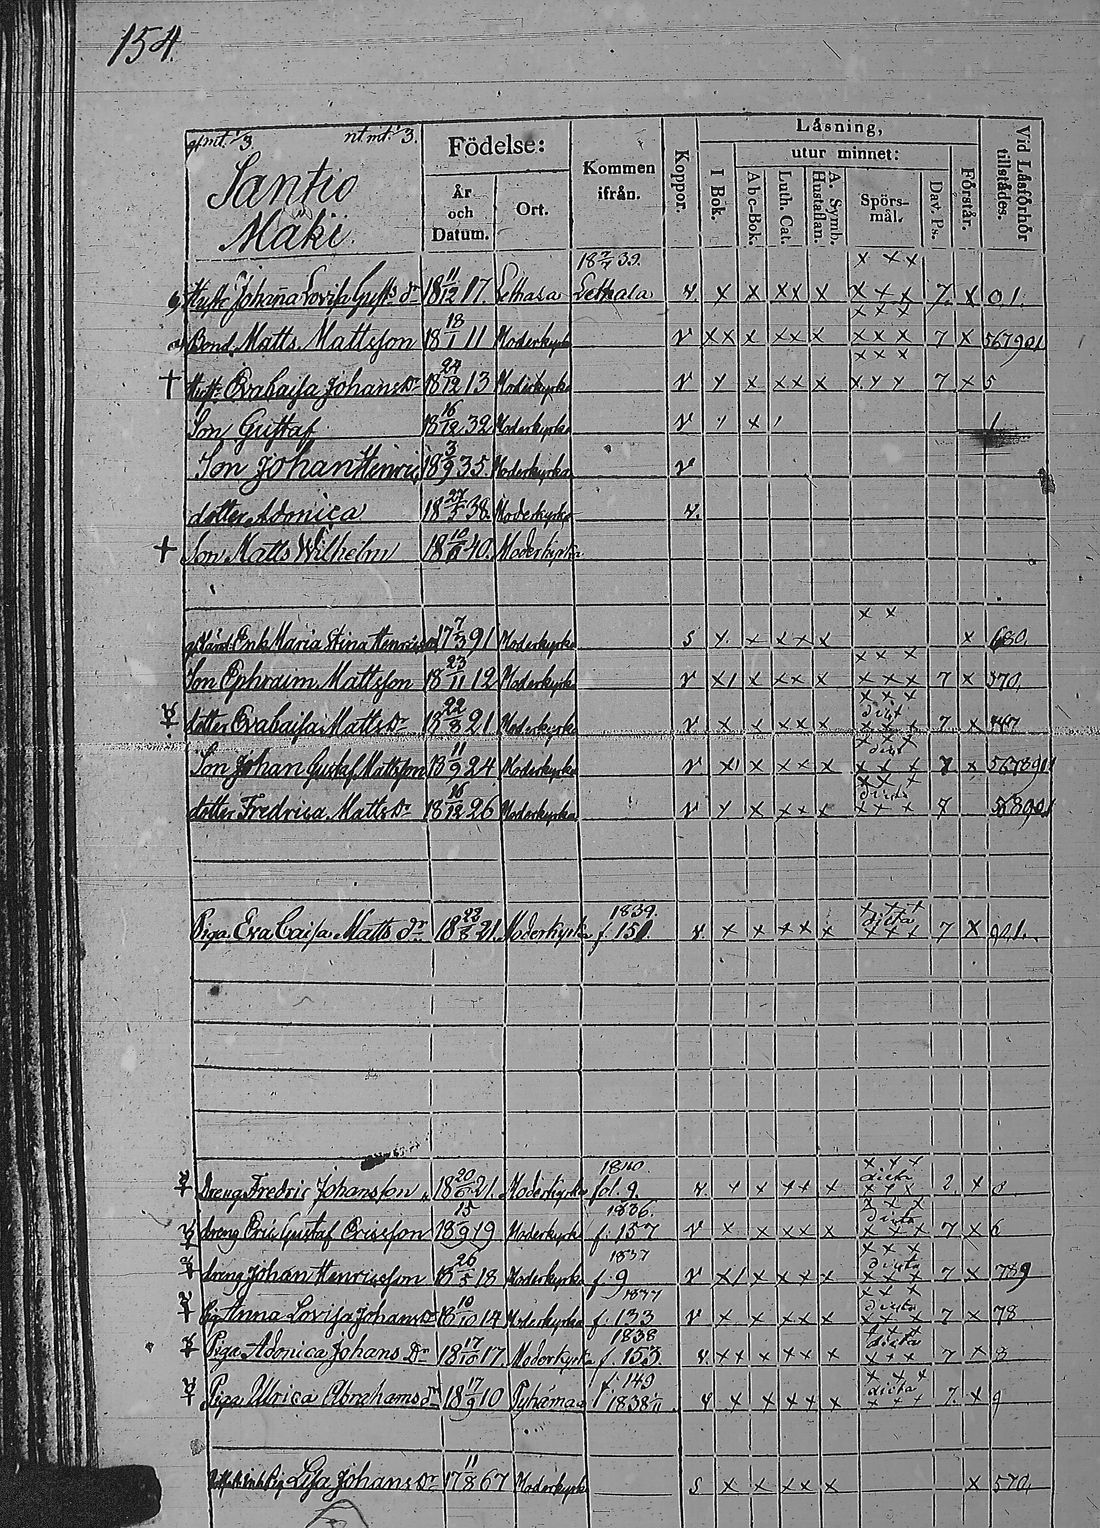 154.
Santio
Mäki.
Födelse:
År
och
Datum.
Ort.
Kommen
ifrån.
Koppor.
Läsning,
I Bok.
utur minnet:
Abc-Bok.
Luth. Cat.
A. Symb.
Hustaflan.
Spörs-
mål.
Dav. Ps.
Förstår.
Vid Läsförhör
tillstädes.
Johanna Lovisa Gusts dr 18 11/12 17. Lethala Lethala v x x xx x x x x 7. x 01.
Bond. Matts Mattsson 18 18/1 11 Moderkyrka v xx x xx x x x x 7 x 567901
Hust. Evacaisa Johans dr 18 24/12 13 Moderkyrka v x x xx x x x x 7 x 5
Son Gustaf 18 16/12 32 Moderkyrka v
Son Johan Henric 18 3/9 35 Moderkyrka v
dotter Adonica 18 27/5 38. Moderkyrka v.
Son Matts Wilhelm 40. Moderkyrka
Enk. Maria Stina 17 7/3 91 Moderkyrka s x x xx x x 680.
Son Ephraim Mattsson 18 23/11 12 Moderkyrka v x x xx x x x x 7 x 570.
dotter Evacaisa Matts dr 18 22/8 21 Moderkyrka v x x xx x x x x 7 x
Son Johan Gustaf Mattsson 18 11/9 24 Moderkyrka v x x xx x x x x 7 x
dotter Fredrica Matts dr 18 16/12 26 Moderkyrka v x x xx x x x x 7
1839.
Piga Eva Caisa Matts dr 18 22/8 21. Moderkyrka f 151. v x x xx x dicta x x x 7 x 901.
1840.
Dreng Fredric Johansson 18 20/6 21. Moderkyrka fol. 9. v. x x xx x dicta x x x x
1836.
dreng Eric Gustaf Ericsson 18 15/9 19 Moderkyrka f. 157 v x x xx x dicta x x x 7 x 6
1837
dreng Johan Henricsson 18 26/5 18 Moderkyrka f. 9 v x x xx x dicta x x x 7 x 789
1837
Anna Lovisa Johans dr 18 10/10 14 Moderkyrka f. 133 v x x xx x dicta x x x 7 x 78
1838
Piga Adonica Johans Dr 18 17/10 17. Moderkyrka f. 153. v. xx x xx x dicta x x x 7 x 8
f. 149
Piga Ulrica Abrahams dr 18 17/9 10 Pyhämaa 1838 v x x xx x dicta x x x 7. x 9
Lisa Johans Dr 17 11/8 67 Moderkyrka s x x xx x x 570.